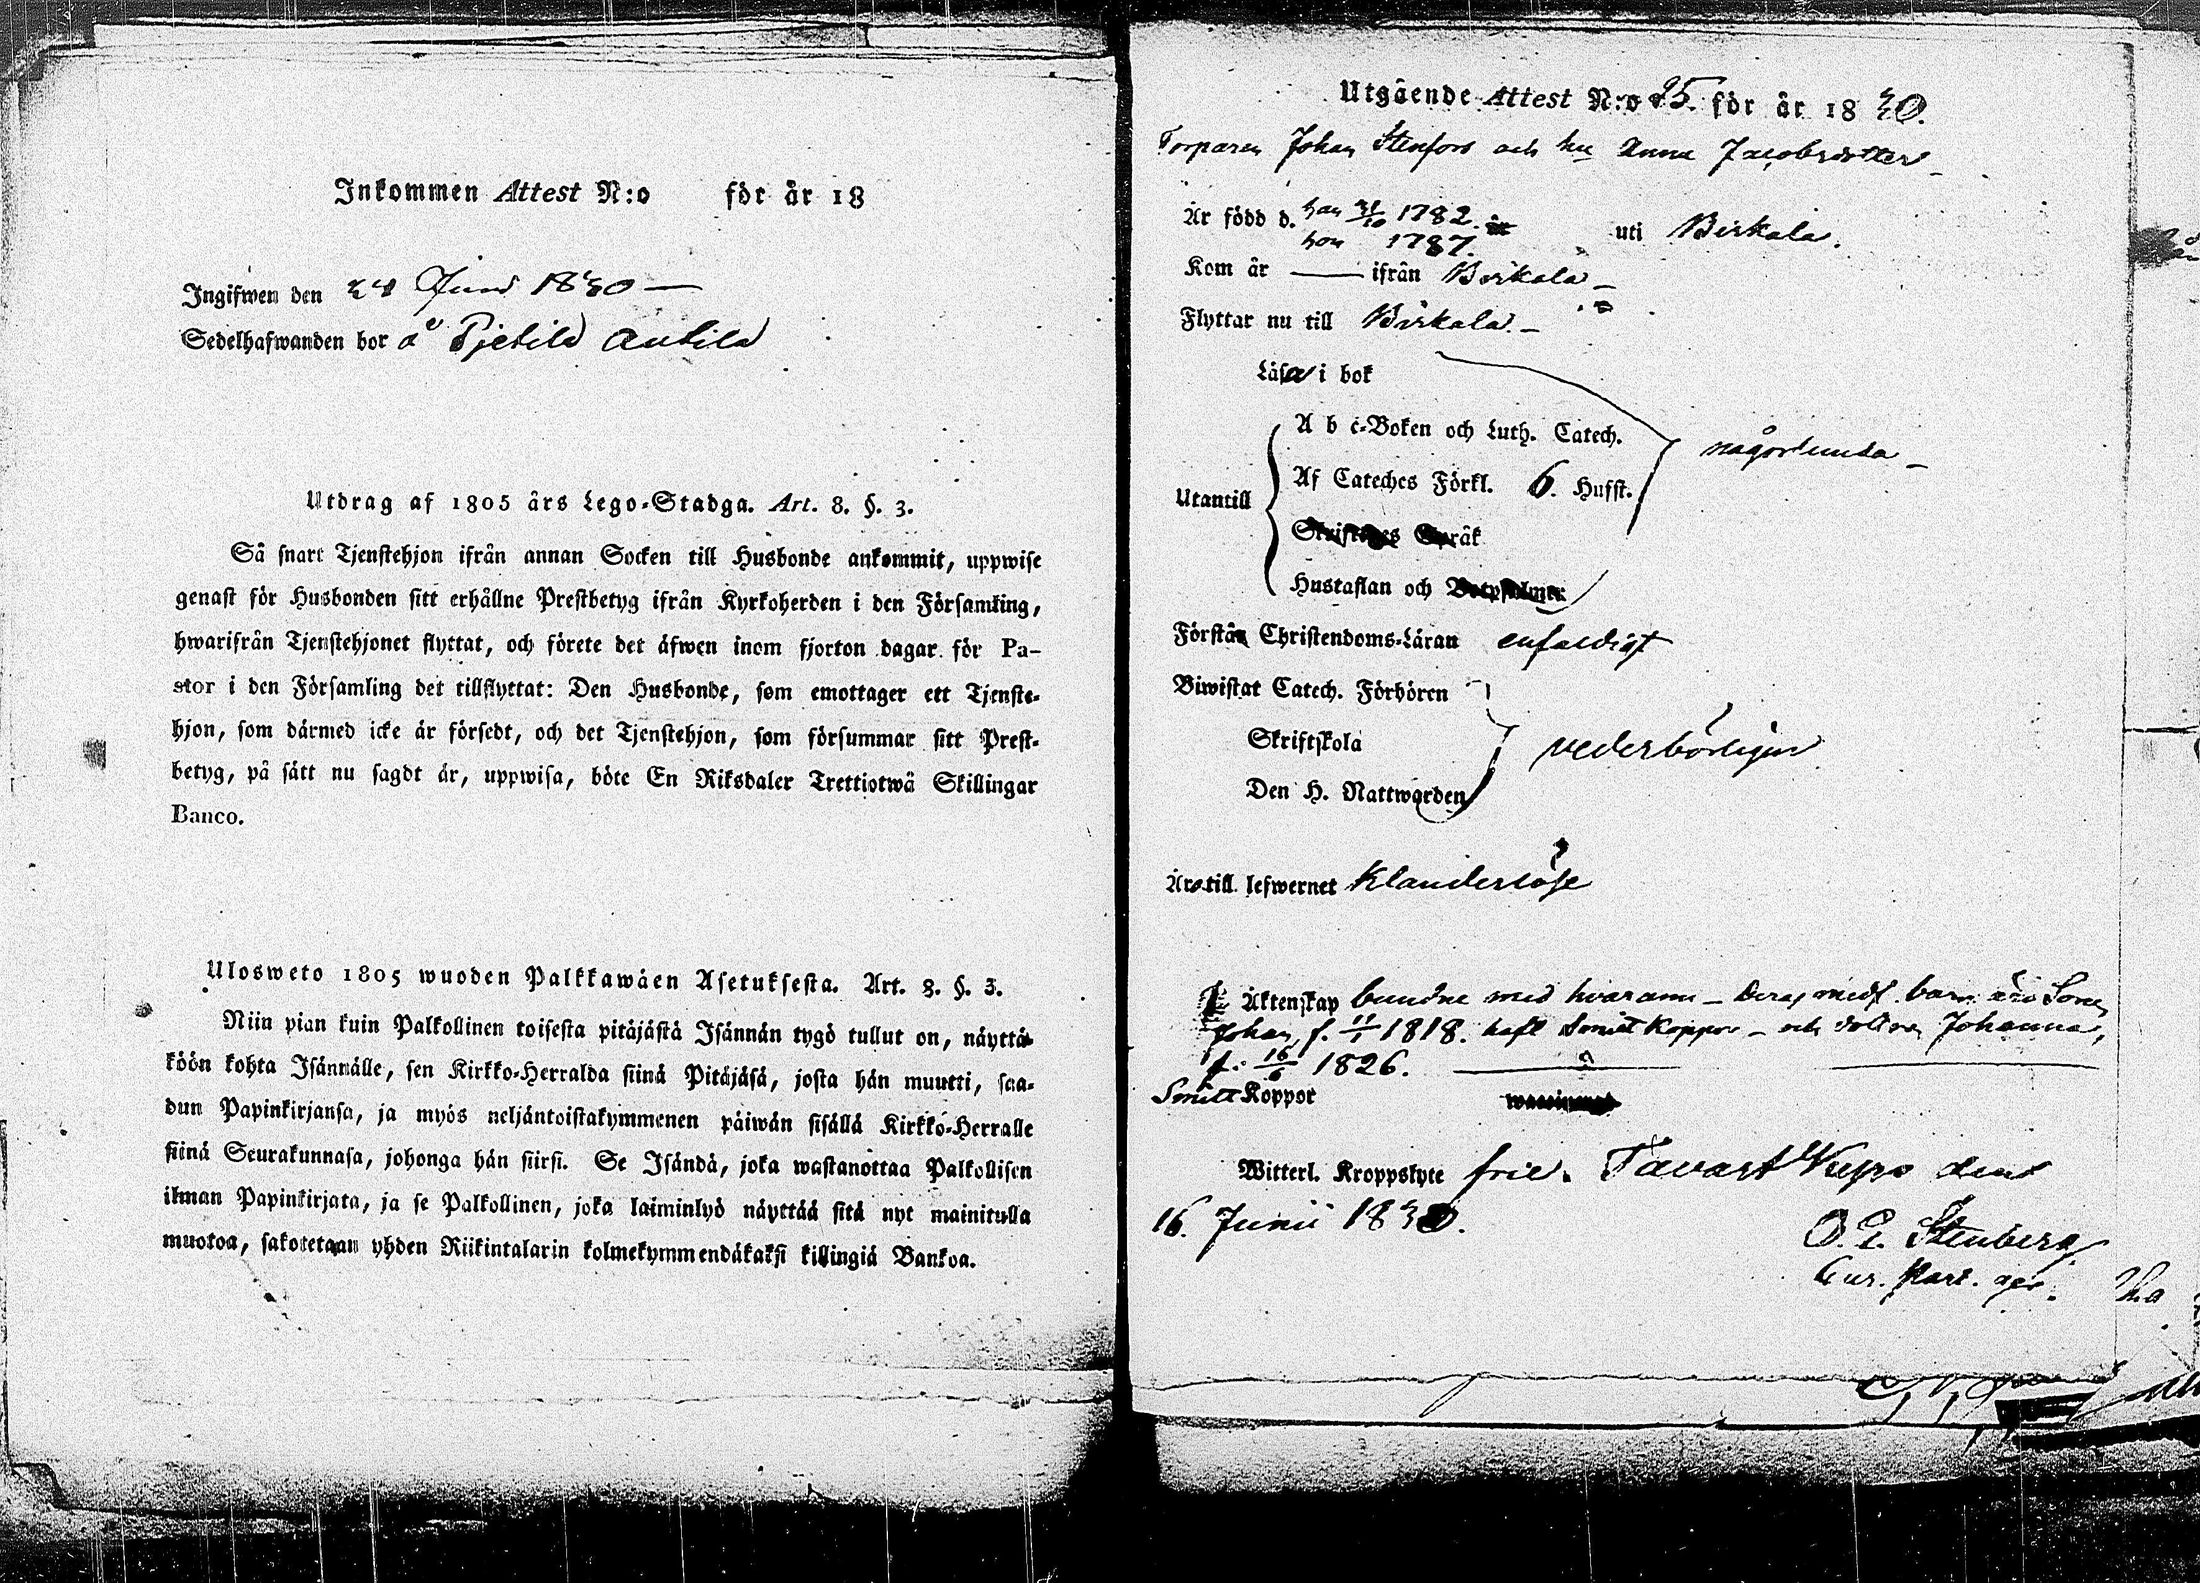 Inkommen Attest N:o för år 18
Ingifwen den 24 Junii 1830 —
Sedelhafwanden bor å Pjetilä Anttila
Utdrag af 1805 års Lego-Stadga. Art. 8. §. 3.
Så snart Tjenstehjon ifrån annan Socken till Husbonde ankommit, uppwise
genast för Husbonden sitt erhållne Prestbetyg ifrån Kyrkoherden i den Församling,
hwarifrån Tjenstehjonet flyttat, och förete det äfwen inom fjorton dagar för Pa-
stor i den Församling det tillflyttat: Den Husbonde, som emottager ett Tjenste-
hjon, som därmed icke är försedt, och det Tjenstehjon, som försummar sitt Prest-
betyg, på sätt nu sagdt är, uppwisa, böte En Riksdaler Trettiotwå Skillingar
Banco.
Ulosweto 1805 wuoden Palkkawäen Asetuksesta. Art. 8. §. 3.
Niin pian kuin Palkollinen toisesta pitäjästä Isännän tygö tullut on, näyttä-
köön kohta Isännälle, sen Kirkko-Herralda siinä Pitäjäsä, josta hän muutti, saa-
dun Papinkirjansa, ja myös neljäntoistakymmenen päiwän sisällä Kirkko-Herralle
siinä Seurakunnasa, johonga hän siirsi. Se Isändä, joka wastanottaa Palkollisen
ilman Papinkirjata, ja se Palkollinen, joka laiminlyö näyttää sitä nyt mainitulla
muotoa, sakotetaan yhden Riikintalarin kolmekymmendäkaksi killingiä Bankoa.
Utgående Attest N:o 25. för år 1830.
Torparen Johan Stenfors och hu Anna Jacobsdotter
Är född d. han 31/10 1782. uti Birkala.
hon 1787.
Kom år — ifrån Birkala —
Flyttar nu till Birkala. —
Läsa i bok
A b c-Boken och Luth. Catech. någorlunda —
Af Cateches Förkl. 6. Hufst.
Utantill
Skriftenes Språk
Hustaflan och Botpsalmer
Förstår Christendoms-Läran enfaldigt
Biwistat Catech. Förhören
Skriftskola vederbörligen
Den H. Nattwarden
Äro till lefwernet Klanderlöse
I Äktenskap bundne med hvarann — Deras medf. barn äro Sonen
Johan, f. 11/1 1818. haft Smitt Koppor — och dottren Johanna,
f. 16/6 1826.
Smitt Koppor
Witterl. Kroppslyte frie. Tavast Kyro den
16. Junii 1830.
O. E. Stenberg
Cur. Past. ger.